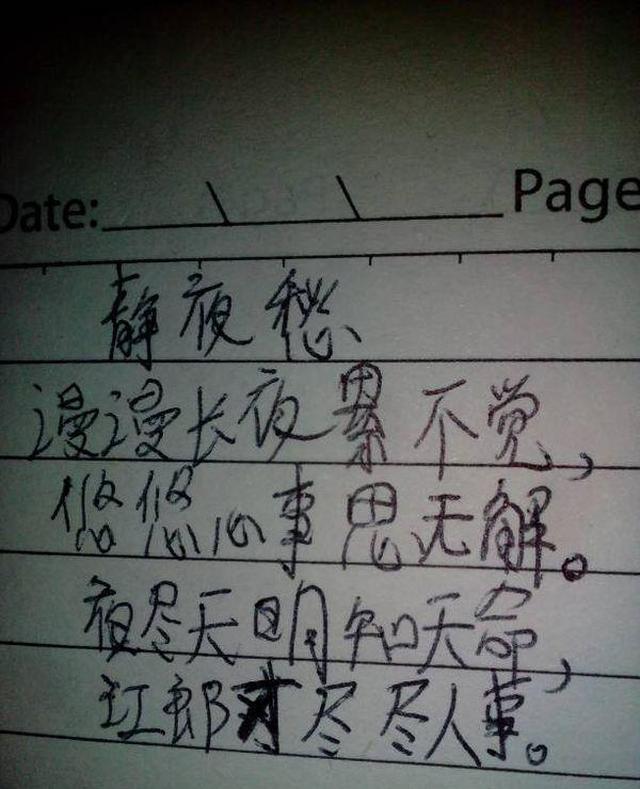 Date: \ \ Page
静夜愁
漫漫长夜累不觉,
悠悠心事思无解。
夜尽天明知天命,
江郎才尽尽人事。